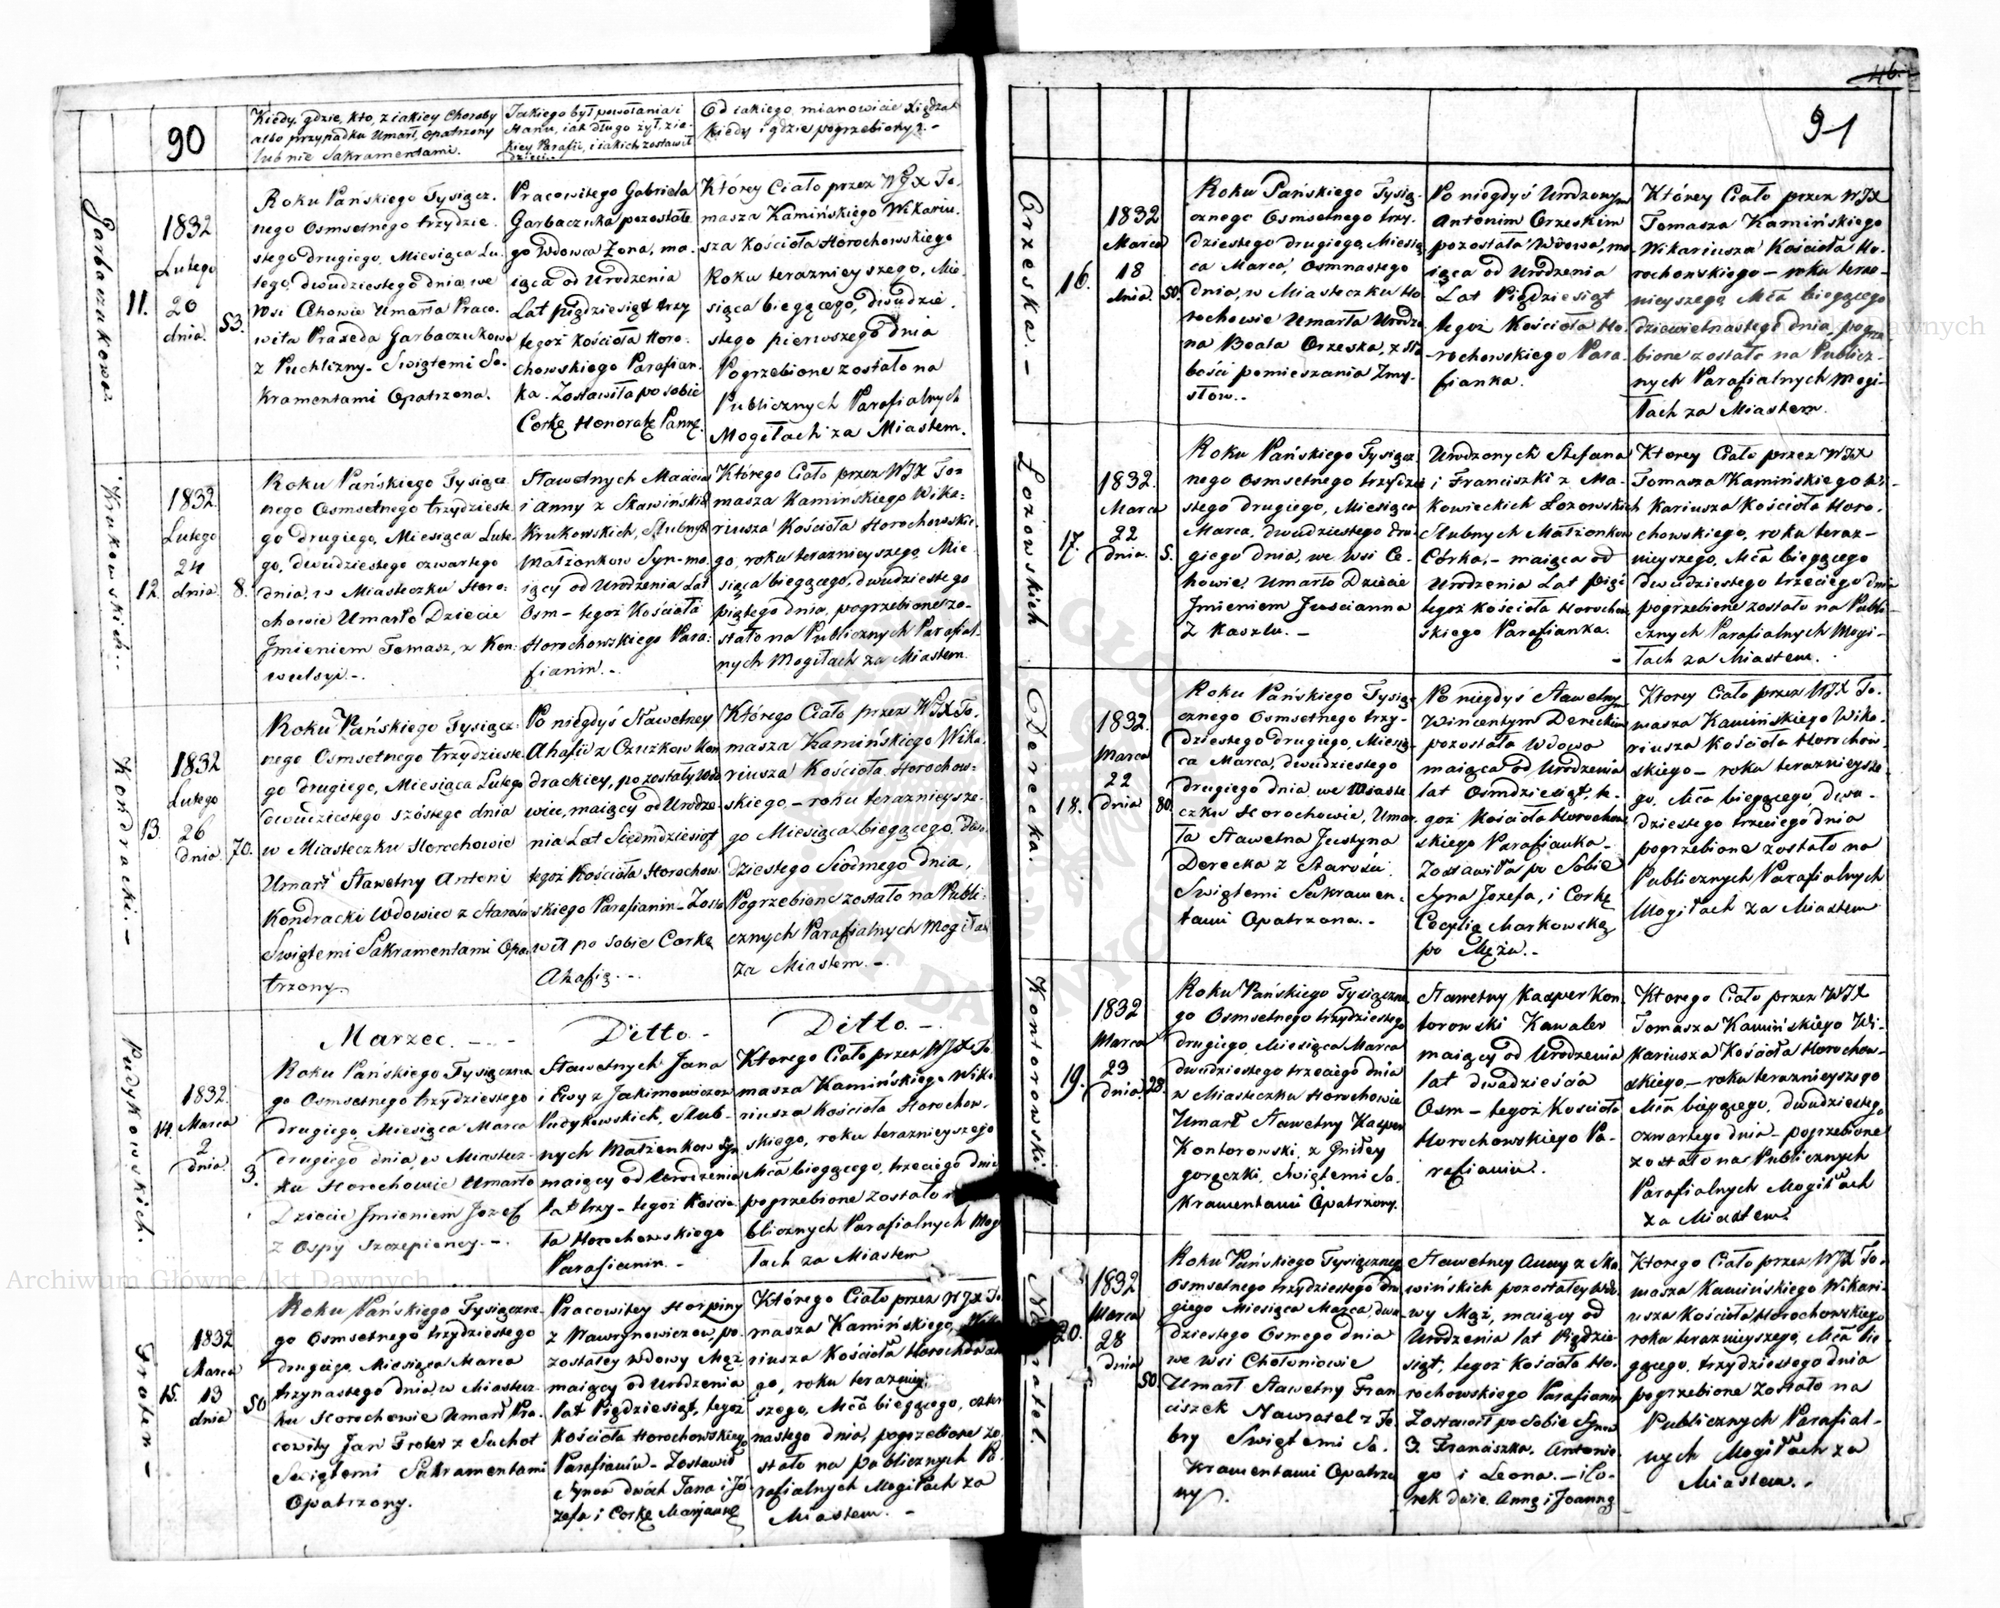 90
Kiedy, gdzie, kto, z iakiey Choroby
albo przypadku Umarł, opatrzony
lub nie Sakramentami.
Jakiego był powołania i
Stanu, iak długo żył, z ia-
kiey Parafii, i iakich zostawił
dzieci.
Od iakiego, mianowicie Xiędza?
Kiedy i gdzie pogrzebiony?.-
Garbaczukowa
11.
1832
Lutego
20
dnia.
53.
Roku Pańskiego Tysiącz.
nego Osmsetnego trzydzie.
stego drugiego, Miesiąca Lu.
tego, dwudziestego dnia, we
Wsi Cehowie Umarła Praco.
wita Praxeda Garbaczukowa
z Puchlizny- Swiętemi Sa.
kramentami Opatrzona.
Pracowitego Gabriela
Garbaczuka pozostałe
go Wdowca Żona, ma.
iąca od Urodzenia
Lat pięćdziesiąt trzy
tegoż Kościoła Horo.
chowskiego Parafian.
ka. Zostawiła po sobie
Corkę Honoratę Pannę.
Którey Ciało przez WJX To.
masza Kamińskiego Wikariu.
sza Kościoła Horochowskiego
Roku teraznieyszego, Mie.
siąca biegącego, dwudzie.
stego pierwszego dnia
Pogrzebione zostało na
Publicznych Parafialnych
Mogiłach za Miastem.
Krukowskich.
12.
1832.
Lutego
24
dnia
8.
Roku Pańskiego Tysiącz
nego Osmsetnego trzydzieste
go drugiego, Miesiąca Lute.
go, dwudziestego czwartego
dnia, w Miasteczku Horo.
chowie Umarło Dziecie
Jmieniem Tomasz, z Kon.
wulsyi.-
Sławetnych Macieia
i Anny z Skawińskich
Krukowskich, Slubnych
Małżonkow Syn- ma.
iący od Urodzenia Lat
Osm- tegoż Kościoła
Horochowskiego Para:
fianin.-
Którego Ciało przez WJX To-
masza Kamińskiego Wika:
riusza Kościoła Horochowskie.
go, roku teraznieyszego, Mie.
siąca biegącego, dwudziestego
piątego dnia, pogrzebione zo-
stało na Publicznych Parafial.
nych Mogiłach za Miastem.
Kondracki.-
13.
1832
Lutego
26
dnia
70.
Roku Pańskiego Tysiącz
nego Osmsetnego trzydzieste
go drugiego, Miesiąca Lutego
dwudziestego szóstego dnia
w Miasteczku Horochowie
Umarł Sławetny Antoni
Kondracki Wdowiec z Starości
Swiętemi Sakramentami Opa
trzony.
Po niegdyś Sławetney
Ahafii z Czuzkow Kon
drackiey, pozostały Wdo
wiec, maiący od Urodze.
nia Lat Siedmdziesiąt
tegoż Kościoła Horochow.
skiego Parafianin- Zosta
wił po sobie Corkę
Ahafię.-
Którego Ciało przez WJX To.
masza Kamińskiego Wika.
riusza Kościoła, Horochow.
skiego,- roku teraznieysze.
go Miesiąca biegącego, dwu.
dziestego Siodmego dnia,
Pogrzebione zostało na Publi.
cznych Parafialnych Mogiłach
Za Miastem.-
Marzec.-
Ditto.-
Ditto.-
Pudykowskich.
14.
1832.
Marca
2
dnia.
3.
Roku Pańskiego Tysiączne
go Osmsetnego trzydziestego
drugiego, Miesiąca Marca
drugiego dnia, w Miastecz.
ku Horochowie Umarło
Dziecie Jmieniem Jozef
z Ospy Szczepioney.-
Sławetnych Jana
i Ewy z Jakimowiczow
Pudykowskich, Slub-
nych Małżonkow Syn
maiący od Urodzenia
lat trzy- tegoż Kościo.
ła Horochowskiego
Parafianin.-
Ktorego Ciało przez WJX To
masza Kamińskiego Wika
riusza Kościoła Horochow.
skiego, roku teraznieyszego
Mca biegącego, trzeciego dnia
pogrzebione zostało na
blicznych Parafialnych Mogi
łach za Miastem
Froter-
15.
1832
Marca
13
dnia
50
Roku Pańskiego Tysiączne.
go Osmsetnego trzydziestego
drugiego, Miesiąca Marca
trzynastego dnia, w Miastecz.
ku Horochowie Umarł Pra.
cowity Jan Froter z Suchot
Swiętemi Sakramentami
Opatrzony.
Pracowitey Horpiny
z Wawrynowiczow, po.
zostałey Wdowy Mąż
maiący od Urodzenia
lat Pięćdziesiąt, tegoż
Kościoła Horochowskiego
Parafianin- Zostawił
Synow dwóch Jana i Jó
zefa i Corkę Maryannę
Którego Ciało przez WJX To
masza Kamińskiego, Wika
riusza Kościoła Horochowskie
go, roku terazniey.
szego, Mca biegącego, czter
nastego dnia, pogrzebione zo.
stało na publicznych Pa.
rafialnych Mogiłach za
Miastem.-
46.
91
Orzeska.-
16.
1832
Marca
18
dnia
50.
Roku Pańskiego Tysią-
cznego Osmsetnego trzy.
dziestego drugiego, Miesią
ca Marca, Osmnastego
dnia, w Miasteczku Ho.
rochowie Umarła Urodzo
na Beata Orzeska, z Sła
bości pomieszania Zmy.
słow.-
Po niegdyś Urodzonym
Antonim Orzeskim
pozostała Wdowa, ma
iąca od Urodzenia
Lat Pięćdziesiąt
tegoż Kościoła Ho.
rochowskiego Para.
fianka.
Którey Ciało przez WJX
Tomasza Kamińskiego
Wikariusza Kościoła Ho.
rochowskiego- roku teraz-
nieyszego, Mca biegącego
dziewietnastego dnia, pogrze
bione zostało na Publicz-
nych Parafialnych Mogi-
łach za Miastem.
Lozowskich
17.
1832.
Marca
22
dnia.
5.
Roku Pańskiego Tysiącz
nego Osmsetnego trzydzie
stego drugiego, Miesiąca
Marca, dwudziestego dru.
giego dnia, we wsi Ce.
howie, Umarło Dziecie
Jmieniem Juscianna
z Kaszlu.-
Urodzonych Stefana
i Franciszki z Ma-
kowieckich Lozowskich
Slubnych Małżonkow
Córka,- maiąca od
Urodzenia Lat Pięć
tegoż Kościoła Horochow
skiego Parafianka.
Ktorey Ciało przez WJX
Tomasza Kamińskiego Wi-
kariusza Kościoła Horo.
chowskiego, roku teraz-
nieyszego, Mca biegącego
dwudziestego trzeciego dnia
pogrzebione zostało na Publi-
cznych Parafialnych Mogi-
łach za Miastem.
Derecka.
18.
1832.
Marca
22
dnia
80.
Roku Pańskiego Tysią-
cznego Osmsetnego trzy-
dziestego drugiego, Miesią-
ca Marca, dwudziestego
drugiego dnia we Miaste
czku Horochowie, Umar
ła Sławetna Justyna
Derecka z Starości
Swiętemi Sakramen.
tami Opatrzona.-
Po niegdyś Sławetnym
Wincentym Dereckim
pozostała Wdowa
maiąca od Urodzenia
lat Osmdziesiąt, te.
goż Kościoła Horochow
skiego Parafianka-
Zostawiła po Sobie
Syna Jozefa, i Corkę
Cecylią Markowską
po Mężu.-
Ktorey Ciało przez WJX To.
masza Kamińskiego Wika.
riusza Kościoła Horochow.
skiego- roku teraznieysze.
go, Mca biegącego, dwu-
dziestego trzeciego dnia
pogrzebione zostało na
Publicznych Parafialnych
Mogiłach za Miastem
Kontorowski.
19.
1832
Marca
23
dnia
28.
Roku Pańskiego Tysiączne
go Osmsetnego trzydziestego
drugiego, Miesiąca Marca
dwudziestego trzeciego dnia
w Miasteczku Horochowie
Umarł Sławetny Kasper
Kontorowski, z Gniłey
gorączki, Swiętemi Sa.
kramentami Opatrzony.
Sławetny Kasper Kon.
torowski Kawaler
maiący od Urodzenia
lat dwadzieścia
Osm- tegoż Kościoła
Horochowskiego Pa-
rafianin.
Ktorego Ciało przez WJX
Tomasza Kamińskiego Wi-
kariusza Kościoła Horochow-
skiego,- roku teraznieyszego
Mca biegącego, dwudziestego
czwartego dnia- pogrzebione
zostało na Publicznych
Parafialnych Mogiłach
za Miastem.
20.
1832
Marca
28
dnia
50.
Roku Pańskiego Tysiącznego
Osmsetnego trzydziestego dru
giego Miesiąca Marca, dwu
dziestego Osmego dnia
we Wsi Chołoniowie
Umarł Sławetny Fran
ciszek Nawratel z Fe.
bry Swiętemi Sa.
kramentami Opatrzo
ny.
Sławetney Anny z Ska
wińskich pozostałey Wdo
wy Mąż, maiący od
Urodzenia lat Pięćdzie
siąt, tegoż Kościoła Ho.
rochowskiego Parafianin
Zostawił po Sobie Synow
3. Franciszka, Antonie.
go i Leona.- i Co-
rek dwie. Annę i Joannę
Ktorego Ciało przez WJX To.
masza Kamińskiego Wikari-
usza Kościoła Horochowskiego
roku teraznieyszego, Mca bie
gącego, trzydziestego dnia
pogrzebione zostało na
Publicznych Parafial-
nych Mogiłach za
Miastem.
Archiwum Główne Akt Dawnych